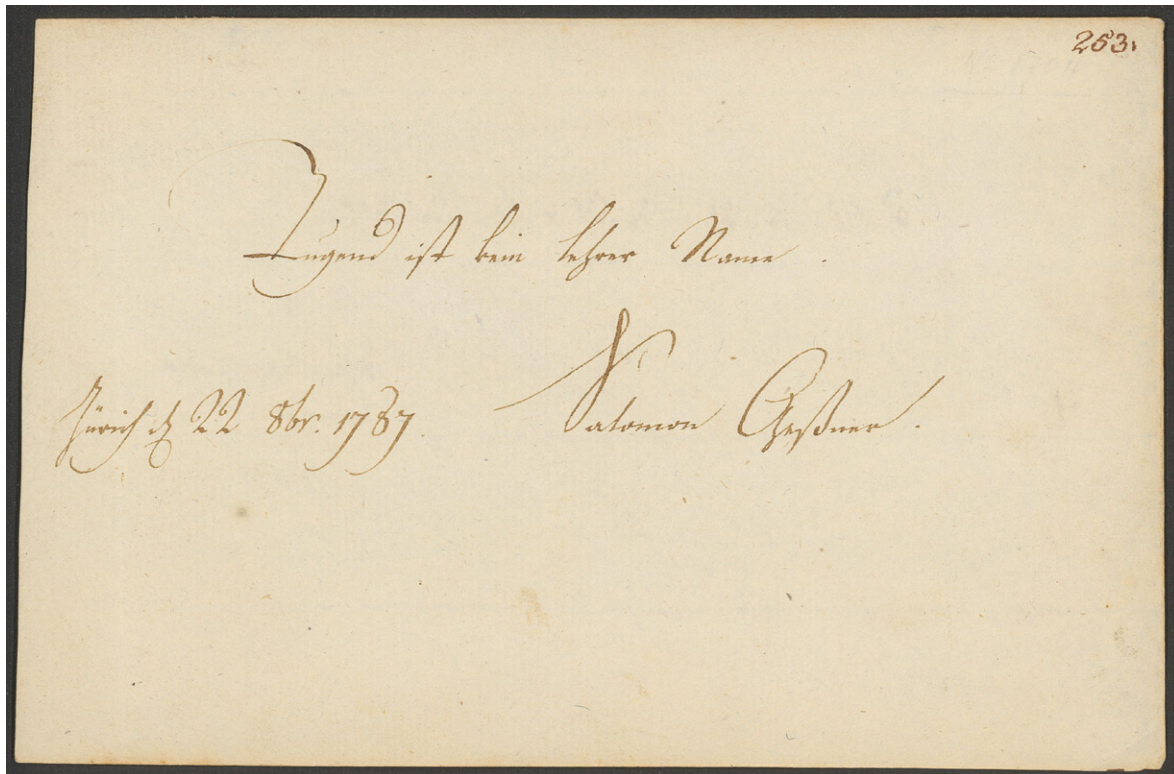 253.
Tugend ist kein leerer Name.
Zürich d. 22 8br. 1787.
Salomon Geßner.